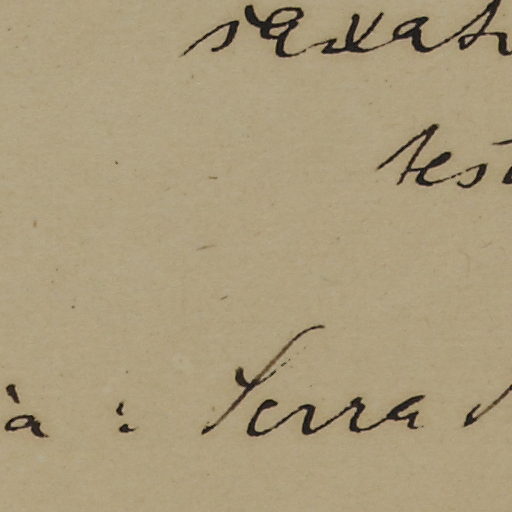 saxat
test
ia : Serra